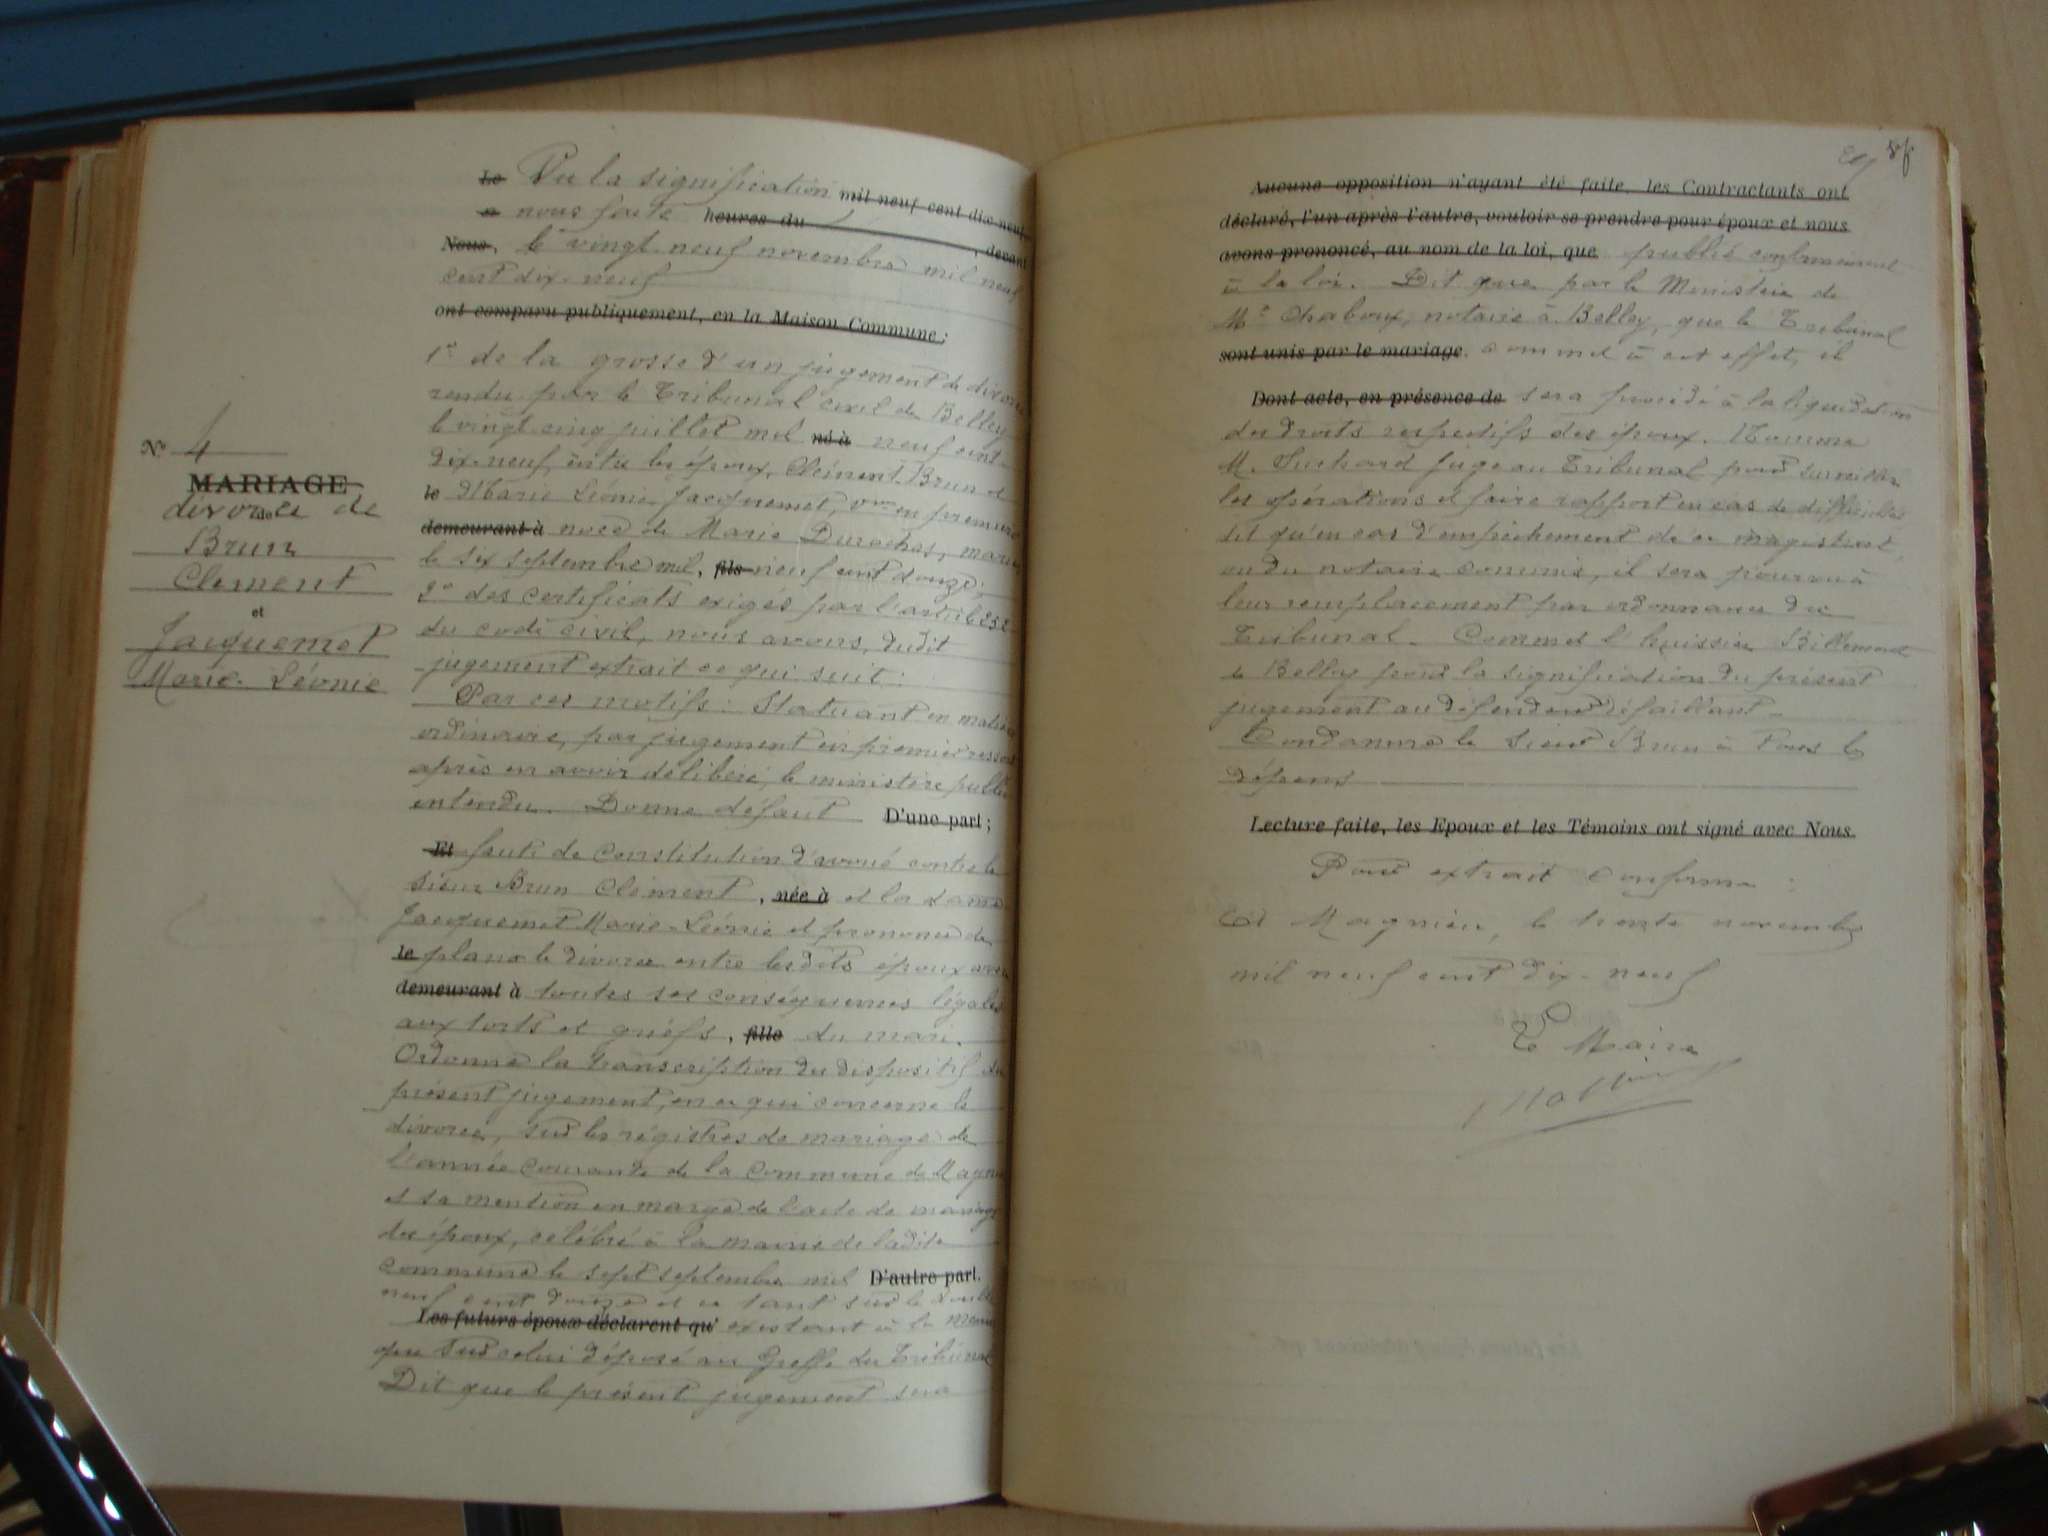 Le Vu la signification mil neuf cent dix-neuf
a nous faite heures du , devant
Nous, le vingt-neuf novembre mil neuf
cent dix-neuf
ont comparu publiquement, en la Maison Commune :
1° de la grosse d'un jugement de divorce
rendu par le Tribunal civil de Belley
le vingt-cinq juillet mil né à neuf cent
dix-neuf, entre les époux, Clément Brun et
le Marie Léonie Jacquemet, en premières
demeurant à noce de Marie mariés
le six septembre mil, fils neuf cent douze ;
2° des certificats exigés par l'article 252
du code civil, nous avons, dudit
jugement extrait ce qui suit :
Par ces motifs : Statuant en matière
ordinaire, par jugement en premier ressort
après en avoir délibéré, le ministère public
entendu. Donne défaut D'une part ;
Et faute de constitution d'avoué contre le
sieur Brun Clément, née à et la dame
Jacquemet Marie-Léonie et prononce de
le plano le divorce entre lesdits époux avec
demeurant à toutes ses conséquences légales
aux torts et griefs, fille du mari.
Ordonne la transcription du dispositif du
présent jugement, en ce qui concerne le
divorce, sur les régistres de mariage de
l'année courante de la commune de Magnieu
et sa mention en marge de l'acte de mariage
des époux, célébré à la mairie de ladite
commune le sept septembre mil D'autre part.
neuf cent douze et ce tant sur le double
Les futurs époux déclarent qu' existant à la Mairie
que sur celui déposé au Greffe du Tribunal
Dit que le présent jugement sera
N° 4
MARIAGE
divorce de
Brun
Clément
et
Jacquemet
Marie-Léonie
Aucune opposition n'ayant été faite, les Contractants ont
déclaré, l'un après l'autre, vouloir se prendre pour époux et nous
avons prononcé, au nom de la loi, que publié conformément
à la loi. Dit que par le Ministère de
Me Chaboux, notaire à Belley, que le Tribunal
sont unis par le mariage. commet à cet effet, il
Dont acte, en présence de sera procédé à la liquidation
des droits respectifs des époux. Nomme
M. Juge au Tribunal pour surveiller
les opérations et faire rapport en cas de difficultés
dit qu'en cas d'empêchement de ce magistrat
ou du notaire commis, il sera pourvu à
leur remplacement par ordonnance du
Tribunal. Commet l'huissier Billemont
de Belley pour la signification du présent
jugement au défendeur défaillant.
Condamne le sieur Brun à tous les
dépens
Lecture faite, les Epoux et les Témoins ont signé avec Nous.
Pour extrait conforme :
à Magnieu, le trente novembre
mil neuf cent dix-neuf
Le Maire